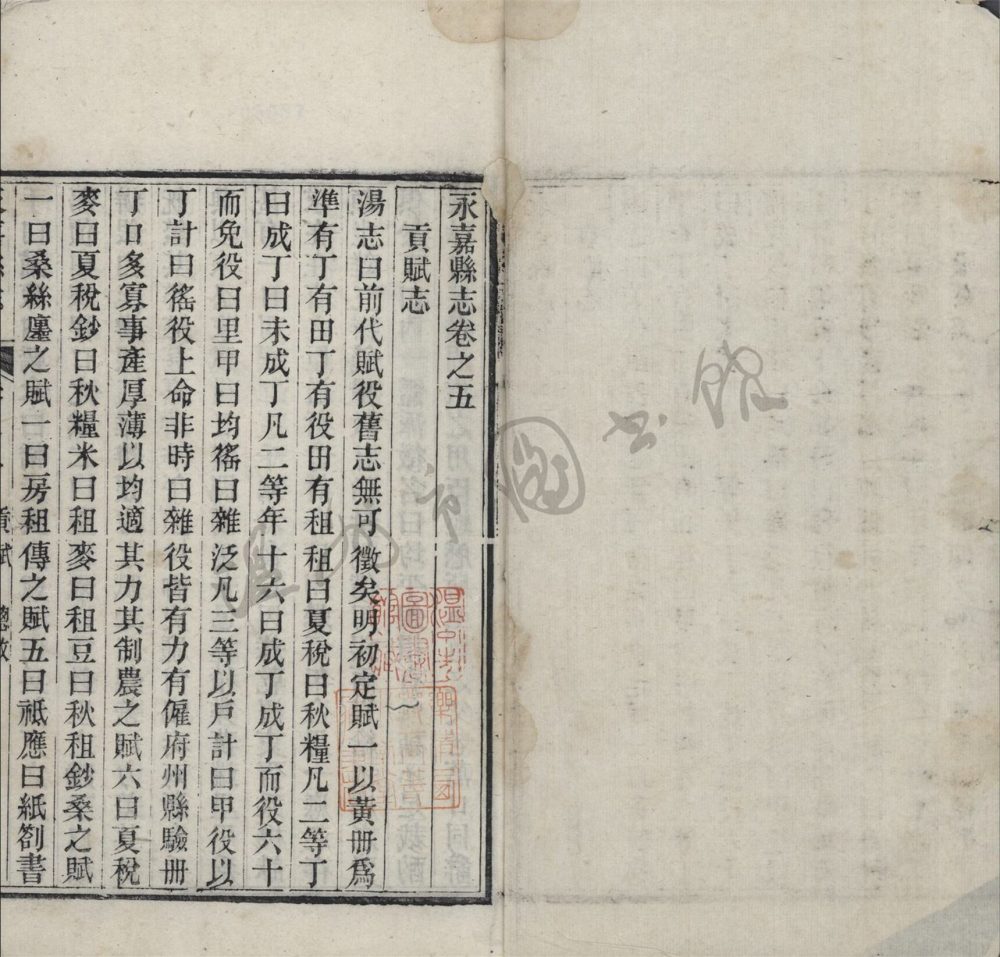 永嘉縣志卷之五
貢賦志
湯志曰前代賦役舊志無可徵矣明初定賦一以黃册爲
準有丁有田丁有役田有租租曰夏稅曰秋糧凡二等丁
曰成丁曰未成丁凡二等年十六曰成丁成丁而役六十
而免役曰里甲曰均徭曰雜泛凡三等以戶計曰甲役以
丁計曰徭役上命非時曰雜役皆有力有僱府州縣驗册
丁口多寡事產厚薄以均適其力其制農之賦六曰夏稅
麥曰夏稅鈔曰秋糧米曰租麥曰租豆曰秋租鈔桑之賦
一曰桑絲廛之賦一曰房租傳之賦五曰祗應曰紙劄書
貢賦 總敘
市圖書館